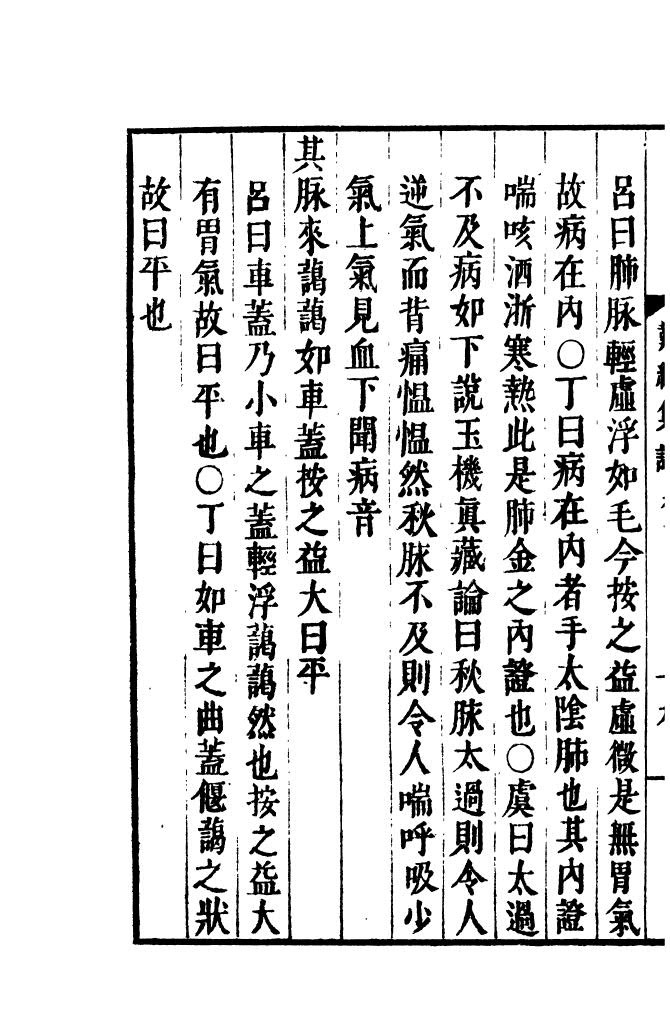 呂曰肺脉輕虛浮如毛今按之益虛微是無胃氣
故病在內○丁曰病在內者手太陰肺也其內證
喘咳洒淅寒熱此是肺金之內證也○虞曰太過
不及病如下說玉機眞藏論曰秋脉太過則令人
逆氣而背痛慍慍然秋脉不及則令人喘呼吸少
氣上氣見血下聞病音
其脉來藹藹如車蓋按之益大曰平
呂曰車蓋乃小車之蓋輕浮藹藹然也按之益大
有胃氣故曰平也○丁曰如車之曲蓋偃藹之狀
故曰平也